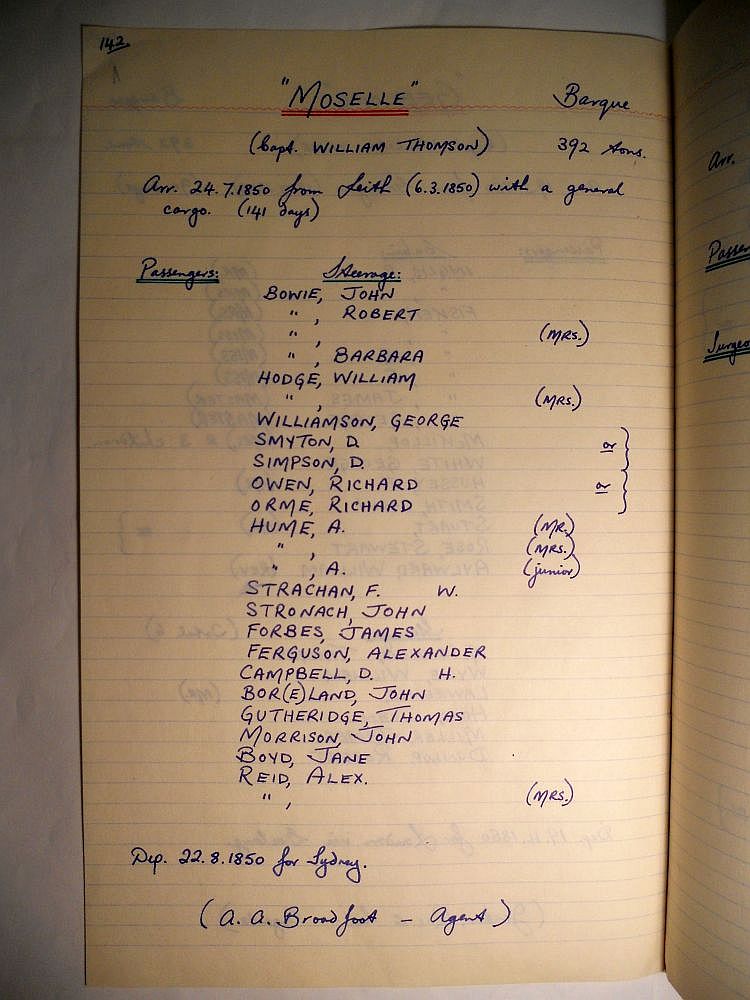 142
"MOSELLE" Barque
(Capt. WILLIAM THOMSON) 392 tons.
Arr. 24.7.1850 from Leith (6.3.1850) with a general
cargo. (141 days)
Passengers: Steerage:
BOWIE, JOHN
" , ROBERT
" , (MRS.)
" , BARBARA
HODGE, WILLIAM
" , (MRS.)
WILLIAMSON, GEORGE
SMYTON, D.
SIMPSON, D. or
OWEN, RICHARD
ORME, RICHARD or
HUME, A. (MR.)
" , (MRS.)
" , A. (junior)
STRACHAN, F. W.
STRONACH, JOHN
FORBES, JAMES
FERGUSON, ALEXANDER
CAMPBELL, D. H.
BOR(E)LAND, JOHN
GUTHERIDGE, THOMAS
MORRISON, JOHN
BOYD, JANE
REID, ALEX.
" , (MRS.)
Dep. 22.8.1850 for Sydney.
(A. A. Broadfoot - Agent)
Arr.